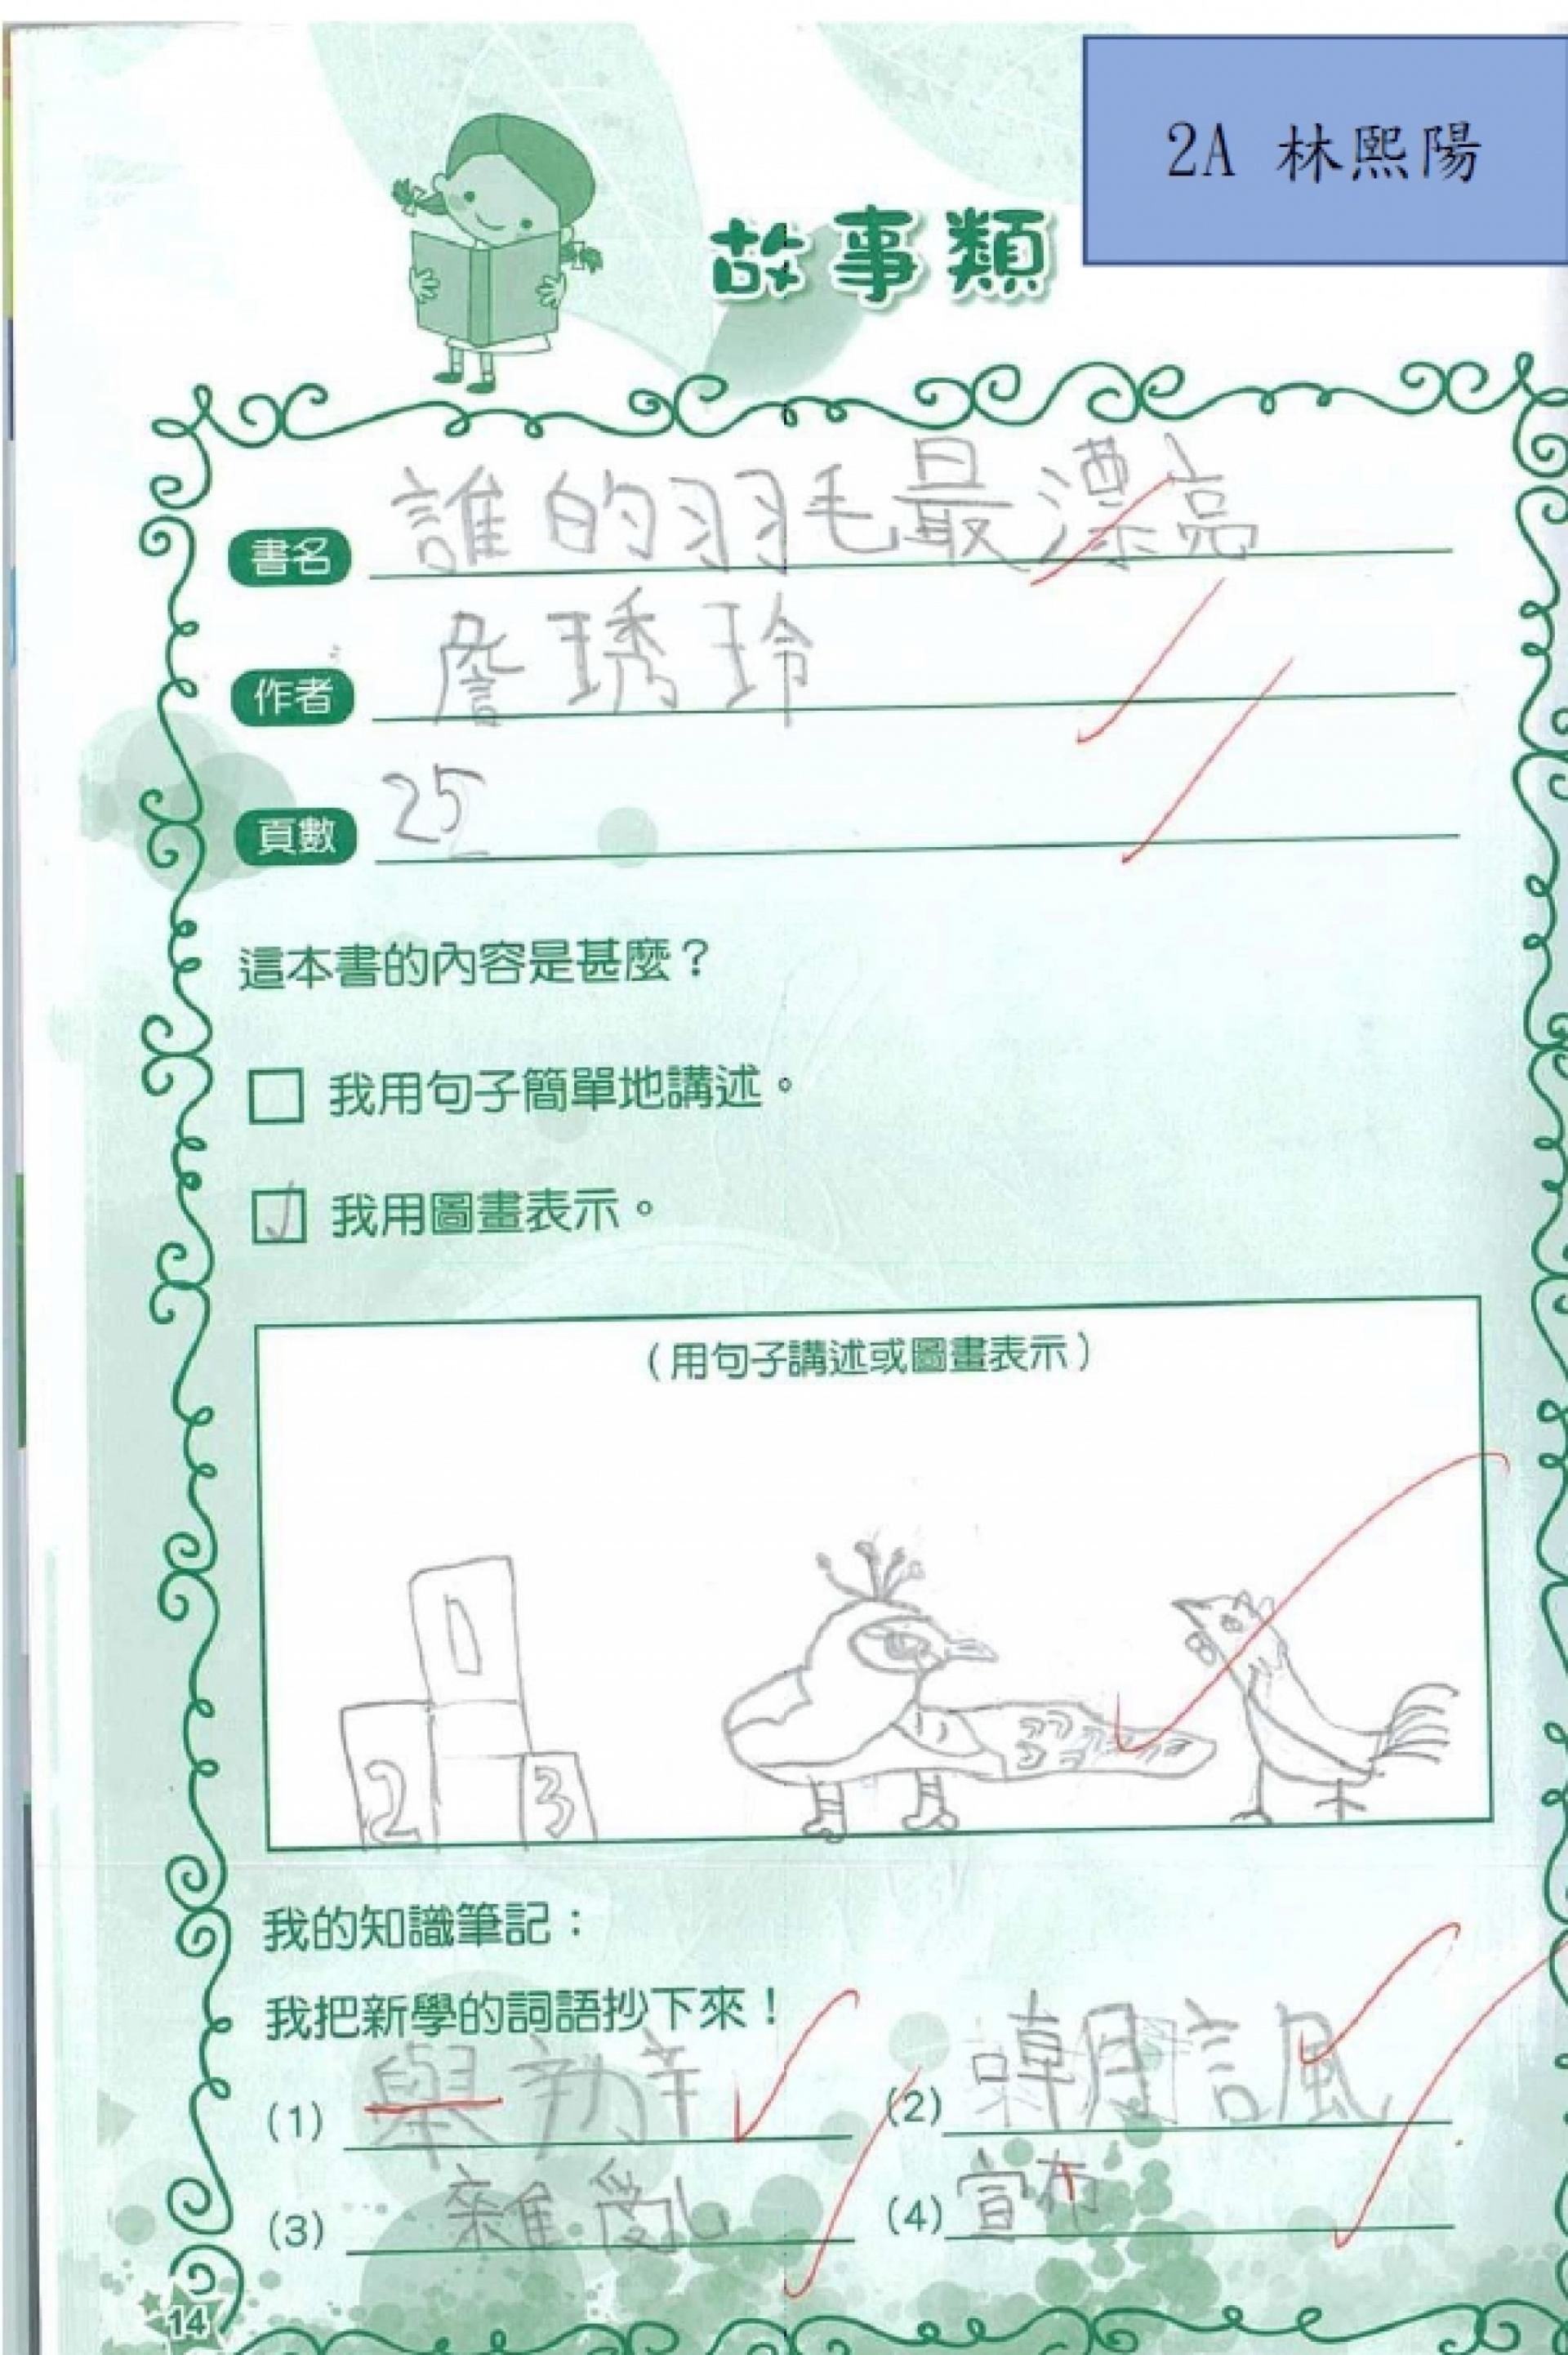 2A 林熙陽
故事類
書名 誰的羽毛最漂亮
作者 詹琇玲
頁數 25
這本書的內容是甚麼？
我用句子簡單地講述。
我用圖畫表示。
（用句子講述或圖畫表示）
1
2 3
我的知識筆記：
我把新學的詞語抄下來！
(1) (2)
(3) 雜亂 (4) 宣布
14